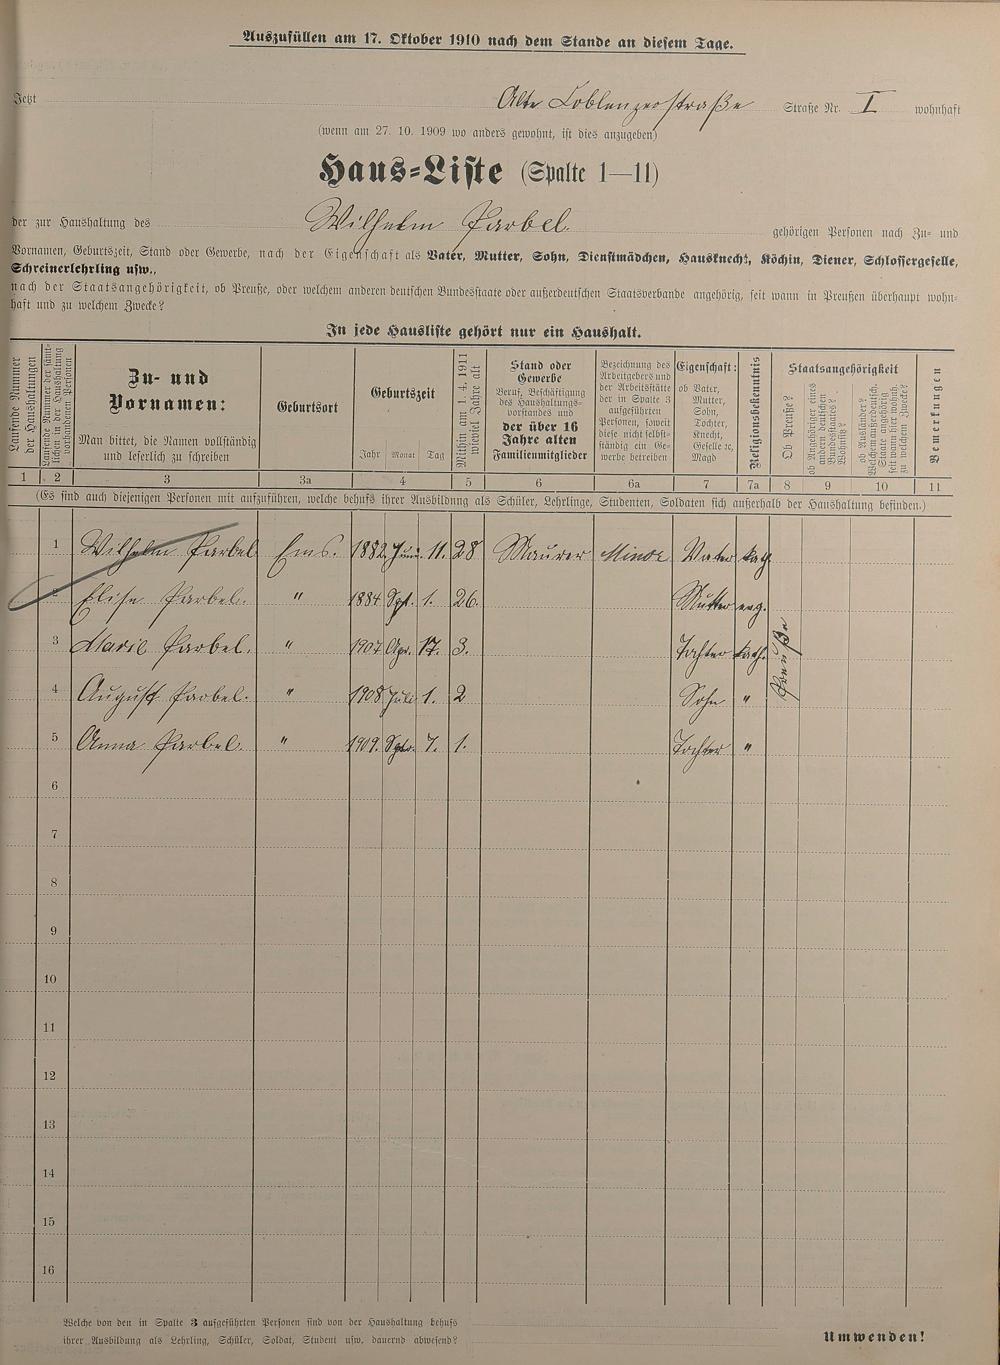 Auszufüllen am 17. Oktober 1910 nach dem Stande an diesem Tage.
Jetzt Alte Coblenzerstraße Straße Nr. I wohnhaft
(wenn am 27. 10. 1909 wo anders gewohnt, ist dies anzugeben)
Haus-Liste (Spalte 1—11)
der zur Haushaltung des Wilhelm Parbel. gehörigen Personen nach Zu- und
Vornamen, Geburtszeit, Stand oder Gewerbe, nach der Eigenschaft als Vater, Mutter, Sohn, Dienstmädchen, Hausknecht, Köchin, Diener, Schlossergeselle,
Schreinerlehrling usw.,
nach der Staatsangehörigkeit, ob Preuße, oder welchem anderen deutschen Bundesstaate oder außerdeutschen Staatsverbande angehörig, seit wann in Preußen überhaupt wohn-
haft und zu welchem Zwecke?
In jede Hausliste gehört nur ein Haushalt.
Laufende Nummer
der Haushaltungen
Laufende Nummer der sämt-
lichen in der Haushaltung
vorhandenen Personen
Zu- und
Vornamen:
Man bittet, die Namen vollständig
und leserlich zu schreiben
Geburtsort
Geburtszeit
Jahr Monat Tag
Mithin am 1. 4. 1911
wieviel Jahre alt
Stand oder
Gewerbe
Beruf, Beschäftigung
des Haushaltungs-
vorstandes und
der über 16
Jahre alten
Familienmitglieder
Bezeichnung des
Arbeitgebers und
der Arbeitsstätte
der in Spalte 3
aufgeführten
Personen, soweit
diese nicht selbst-
ständig ein Ge-
werbe betreiben
Eigenschaft:
ob Vater,
Mutter,
Sohn,
Tochter,
Knecht,
Geselle ec,
Magd
Religionsbekenntnis
Staatsangehörigkeit
Ob Preuße?
ob Angehöriger eines
andern deutschen
Bundesstaates?
Wohnsitz?
ob Ausländer?
Welchem außerdeutsch.
Staate angehörig
seit wann hier wohnh.
zu welchem Zwecke?
Bemerkungen
1 2 3 3a 4 5 6 6a 7 7a 8 9 10 11
(Es sind auch diejenigen Personen mit aufzuführen, welche behufs ihrer Ausbildung als Schüler, Lehrlinge, Studenten, Soldaten sich außerhalb der Haushaltung befinden.)
1 Wilhelm Parbel Ems. 1882 Juni 11. 28 Maurer Minor Vater kath.
2 Elise Parbel. " 1884 Spt. 1. 26. Mutter evg.
3 Marie Parbel. " 1907 Apr. 17. 3. Tochter kath.
Preuße
4 August Parbel. " 1908 Juli 1. 2 Sohn "
5 Anna Parbel. " 1909. Sptr. 7. 1. Tochter "
6
7
8
9
10
11
12
13
14
15
16
Welche von den in Spalte 3 aufgeführten Personen sind von der Haushaltung behufs
ihrer Ausbildung als Lehrling, Schüler, Soldat, Student usw. dauernd abwesend?
Umwenden!